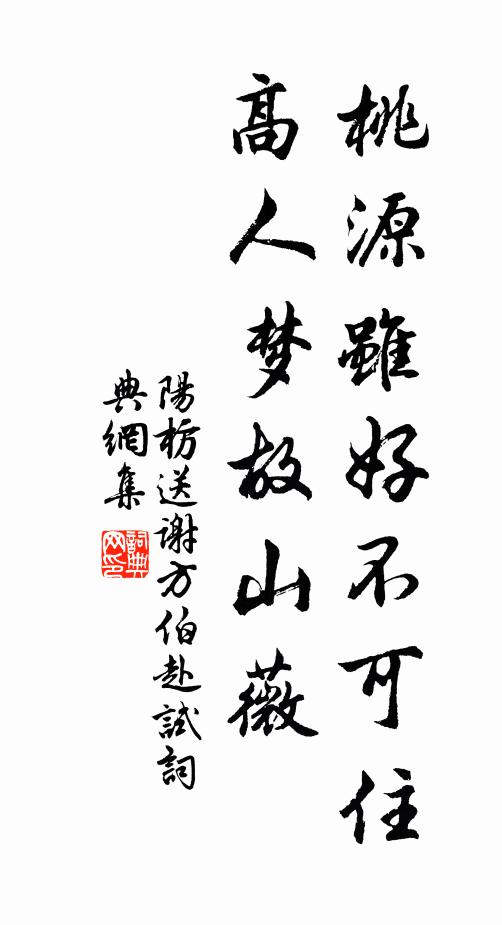 桃源雖好不可住
高人梦故山薇
陽枋送谢方伯赴試詞
典網集
詞典网印